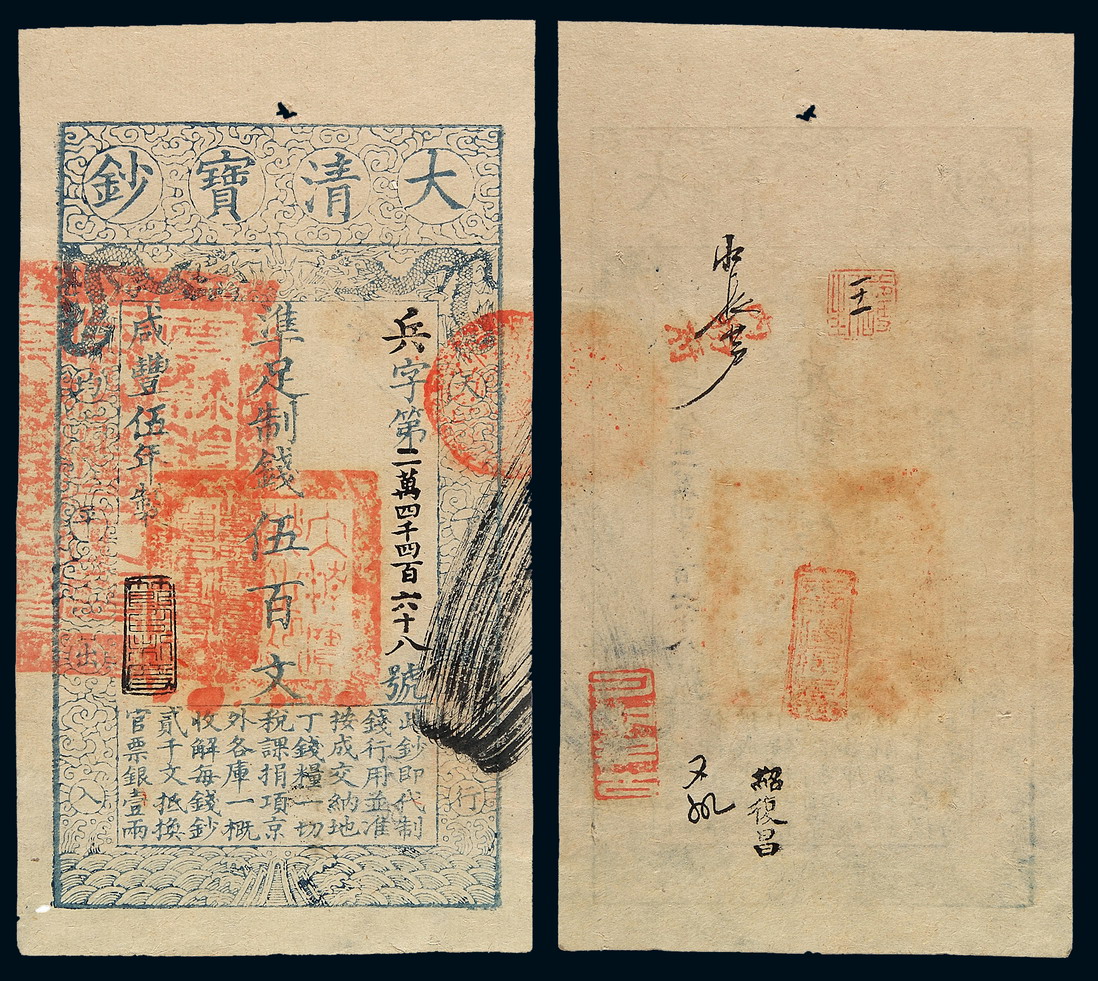 大清寶鈔
兵字第二萬四千四百六十八號
準足制錢伍百文
咸豐伍年製
天
行
均
平
出
入
此鈔即代制
錢行用並准
按成交納地
丁錢糧一切
稅課捐項京
外各庫一概
收解每錢鈔
貳千文抵換
官票銀壹兩
十一
昭復昌